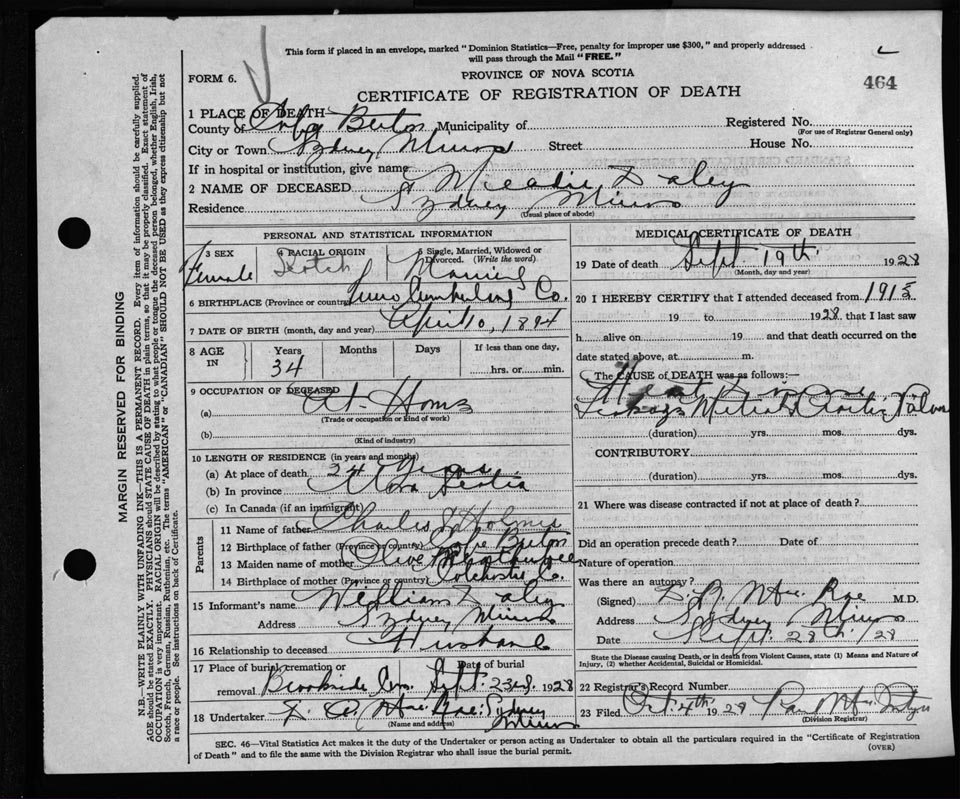 This form if placed in an envelope, marked "Dominion Statistics—Free, penalty for improper use $300," and properly addressed
will pass through the Mail "FREE."
FORM 6.
PROVINCE OF NOVA SCOTIA
464
CERTIFICATE OF REGISTRATION OF DEATH
1 PLACE OF DEATH
County of Cape Breton Municipality of
Registered No.
(For use of Registrar General only)
City or Town Sydney Mines Street House No.
If in hospital or institution, give name
2 NAME OF DECEASED Daley
Residence Sydney Mines
(Usual place of abode)
PERSONAL AND STATISTICAL INFORMATION
3 SEX
Female
4 RACIAL ORIGIN
Scotch
5 Single, Married, Widowed or
Divorced. (Write the word)
Married
6 BIRTHPLACE (Province or country) Cumberland Co.
7 DATE OF BIRTH (month, day and year) April 10, 1894
8 AGE
IN
Years
34
Months
Days
If less than one day.
hrs. or min.
9 OCCUPATION OF DECEASED
(a) At Home
(Trade or occupation or kind of work)
(b)
(Kind of industry)
10 LENGTH OF RESIDENCE (in years and months)
(a) At place of death 24 Years
(b) In province Nova Scotia
(c) In Canada (if an immigrant)
Parents
11 Name of father Charles Holmes
12 Birthplace of father (Province or country) Cape Breton
13 Maiden name of mother Olive
14 Birthplace of mother (Province or country) Colchester Co.
15 Informant's name William Daley
Address Sydney Mines
16 Relationship to deceased Husband
17 Place of burial, cremation or
removal Brookside Cem.
Date of burial
Sept 23rd 1928
18 Undertaker Sydney
Mines
(Name and address)
MEDICAL CERTIFICATE OF DEATH
19 Date of death Sept. 19th 1928
(Month, day and year)
20 I HEREBY CERTIFY that I attended deceased from 1915
19 to 1928, that I last saw
h alive on 19 and that death occurred on the
date stated above, at m.
The CAUSE of DEATH was as follows:—
Heart
(duration) yrs. mos. dys.
CONTRIBUTORY
(duration) yrs. mos. dys.
21 Where was disease contracted if not at place of death?
Did an operation precede death? Date of
Nature of operation
Was there an autopsy?
(Signed) Mac Rae M.D.
Address Sydney Mines
Date Sept. 28th /28
State the Disease causing Death, or in death from Violent Causes, state (1) Means and Nature of
Injury, (2) whether Accidental, Suicidal or Homicidal.
22 Registrar's Record Number
23 Filed Oct. 4th 1928
(Division Registrar)
SEC. 46—Vital Statistics Act makes it the duty of the Undertaker or person acting as Undertaker to obtain all the particulars required in the "Certificate of Registration
of Death" and to file the same with the Division Registrar who shall issue the burial permit.
(OVER)
MARGIN RESERVED FOR BINDING
N.B.—WRITE PLAINLY WITH UNFADING INK—THIS IS A PERMANENT RECORD. Every item of information should be carefully supplied.
AGE should be stated EXACTLY. PHYSICIANS should STATE CAUSE OF DEATH in plain terms, so that it may be properly classified. Exact statement of
OCCUPATION is very important. RACIAL ORIGIN will be described by stating to what people or tongue the deceased person belonged, whether English, Irish,
Scotch, French, German, Russian, Ruthenian, etc. The terms "AMERICAN" or "CANADIAN" SHOULD NOT BE USED as they express citizenship but not
a race or people. See instructions on back of Certificate.